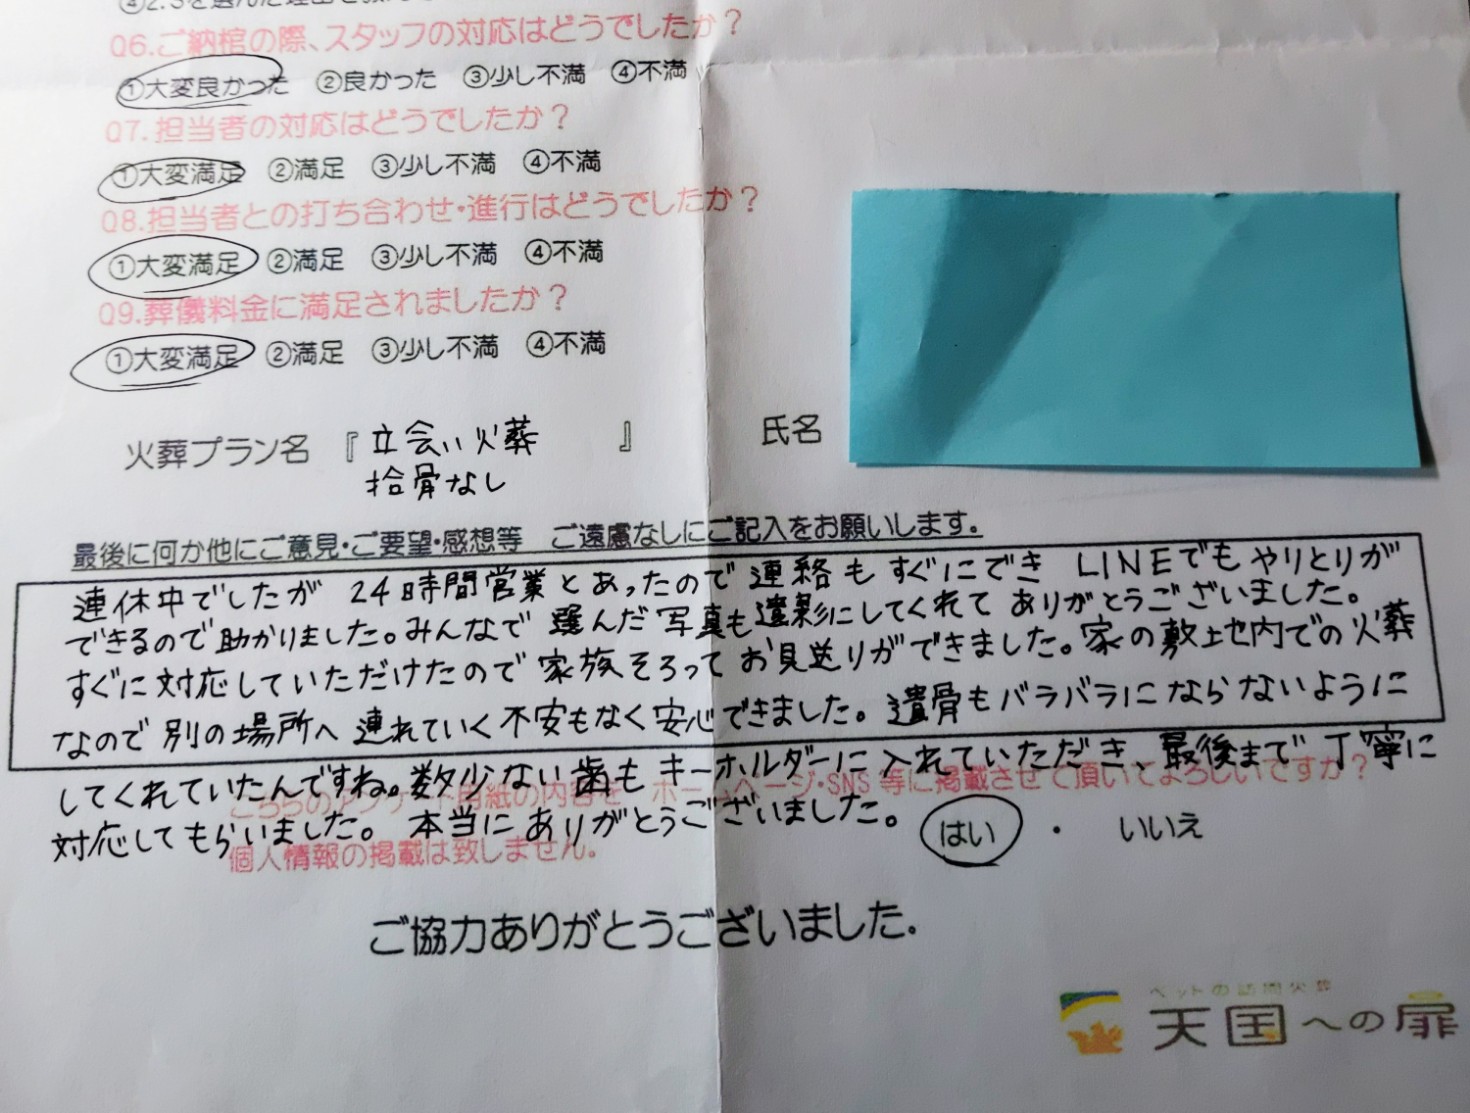 Q6.ご納棺の際、スタッフの対応はどうでしたか？
①大変良かった ②良かった ③少し不満 ④不満
Q7.担当者の対応はどうでしたか？
①大変満足 ②満足 ③少し不満 ④不満
Q8.担当者との打ち合わせ・進行はどうでしたか？
①大変満足 ②満足 ③少し不満 ④不満
Q9.葬儀料金に満足されましたか？
①大変満足 ②満足 ③少し不満 ④不満
火葬プラン名 『立会い火葬 』 氏名
拾骨なし
最後に何か他にご意見・ご要望・感想等 ご遠慮なしにご記入をお願いします。
連休中でしたが 24時間営業とあったので連絡もすぐにでき LINEでもやりとりが
できるので助かりました。みんなで選んだ写真も遺影にしてくれてありがとうございました。
すぐに対応していただけたので家族そろってお見送りができました。家の敷地内での火葬
なので別の場所へ連れていく不安もなく安心できました。遺骨もバラバラにならないように
してくれていたんですね。数少ない歯もキーホルダーに入れていただき、最後まで丁寧に
こちらのアンケート用紙の内容を ホームページ・SNS等に掲載させて頂いてよろしいですか？
対応してもらいました。本当にありがとうございました。
はい ・ いいえ
個人情報の掲載は致しません。
ご協力ありがとうございました.
ペットの訪問火葬
天国への扉